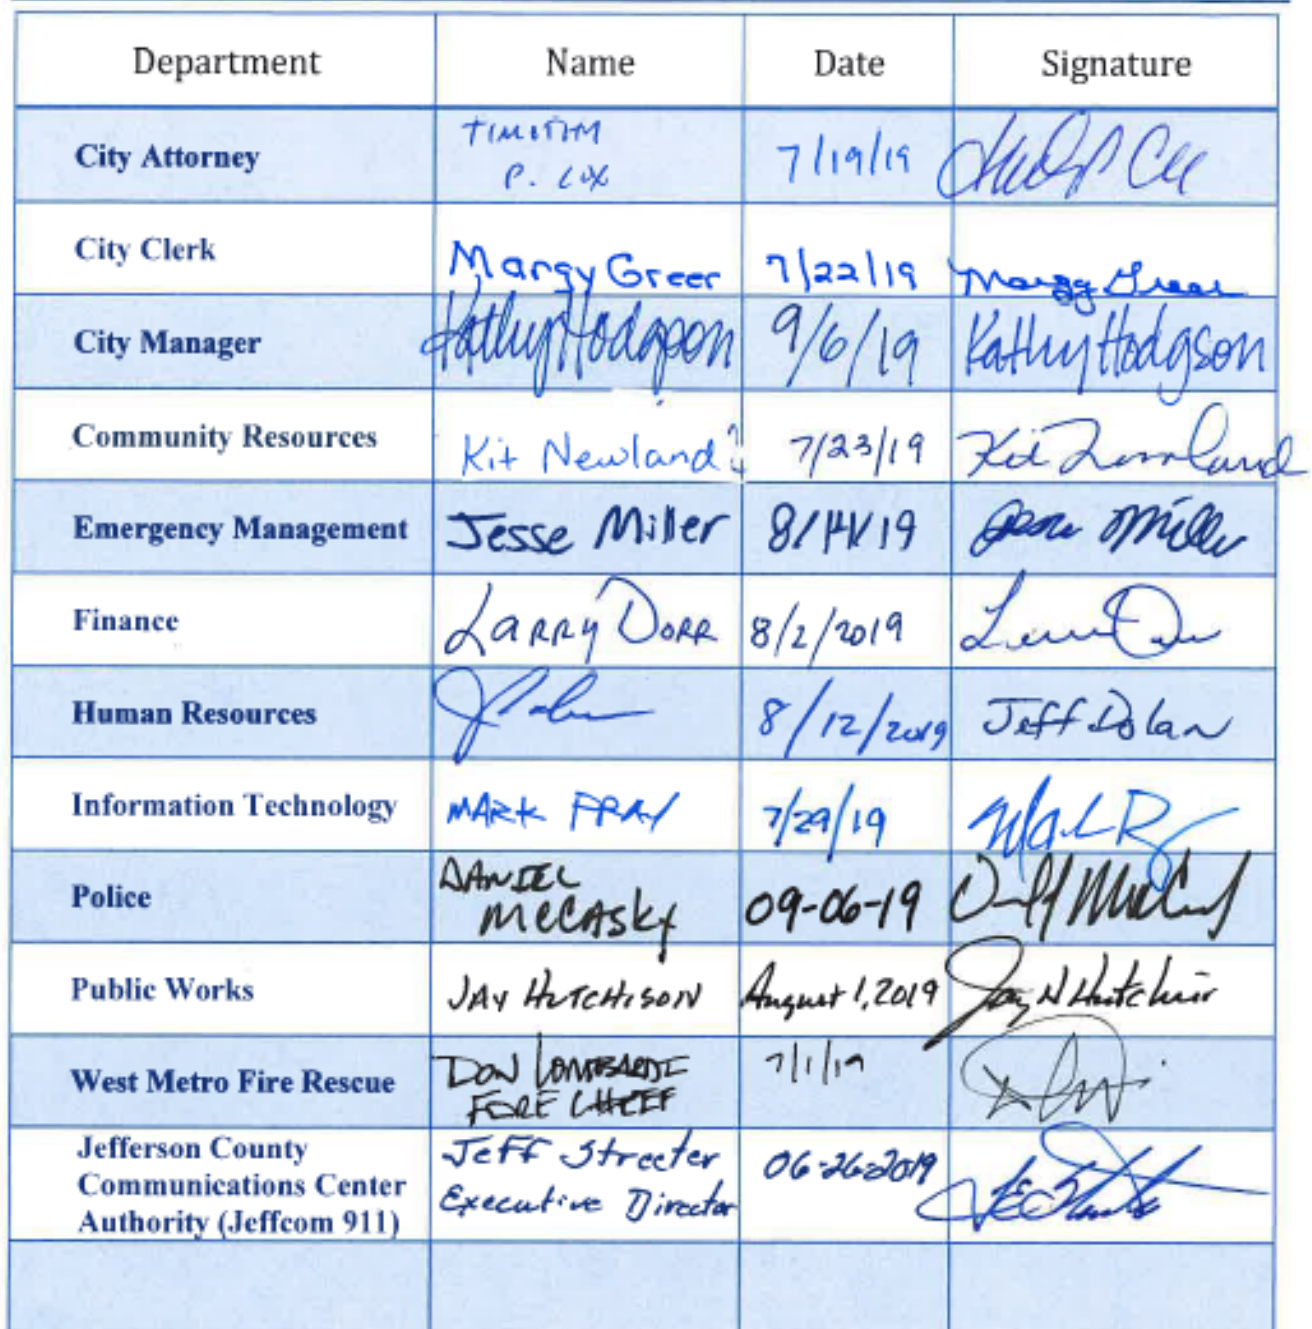 Department Name Date Signature
City Attorney TIMOTHY P. COX 7/19/19
City Clerk Margy Greer 7/22/19 Margy Greer
City Manager Kathy Hodgson 9/6/19 Kathy Hodgson
Community Resources Kit Newland 7/23/19 Kit Newland
Emergency Management Jesse Miller 8/14/19 Jesse Miller
Finance LARRY DORR 8/2/2019
Human Resources 8/12/2019 Jeff Dolan
Information Technology MARK FRAY 7/29/19
Police DANIEL
MCCASKY 09-06-19
Public Works JAY HUTCHISON August 1, 2019 Jay N Hutchison
West Metro Fire Rescue DON LOMBARDI 7/1/19
FIRE CHIEF
Jefferson County Jeff Streeter 06-26-2019
Communications Center Executive Director
Authority (Jeffcom 911)